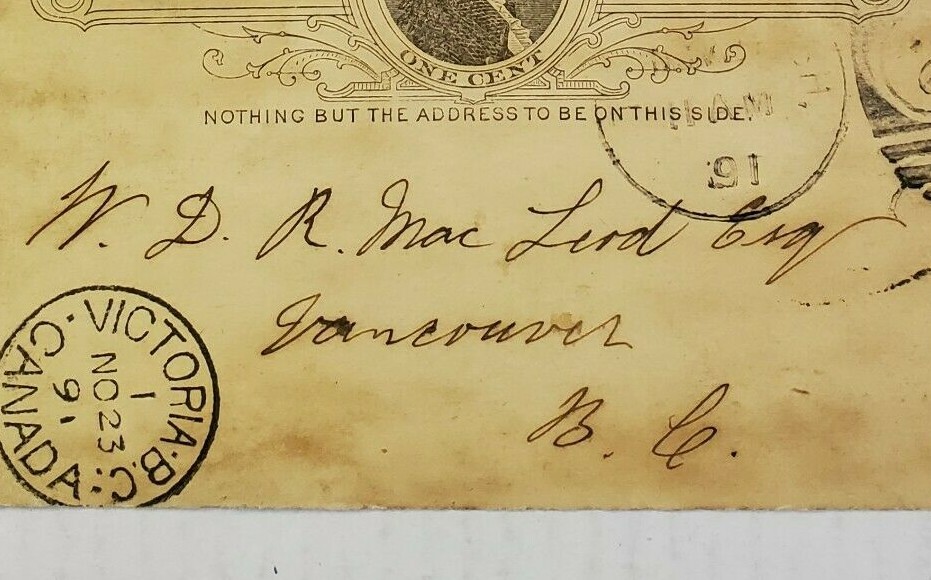 ONE CENT
NOTHING BUT THE ADDRESS TO BE ON THIS SIDE.
11 AM
91
W. D. R. Mac Leod Esq
Vancouver
B. C.
VICTORIA · B.C.
1
NO 23
91
CANADA